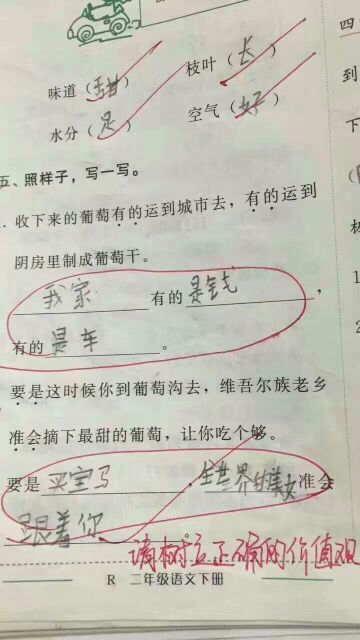 味道（甜） 枝叶（长）
水分（足） 空气（好）
五、照样子，写一写。
收下来的葡萄有的运到城市去，有的运到
阴房里制成葡萄干。
我家有的是钱，
有的是车。
要是这时候你到葡萄沟去，维吾尔族老乡
准会摘下最甜的葡萄，让你吃个够。
要是买宝马，全世界的美女准会
跟着你。
请树立正确的价值观
R 二年级语文下册
四
到
下